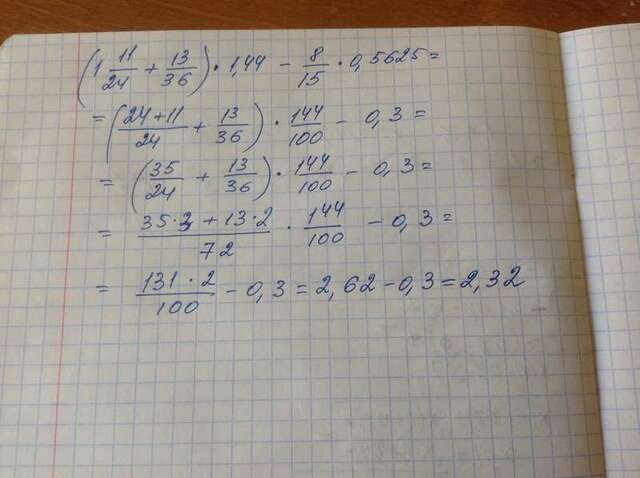 (1 11/24 + 13/36) · 1,44 − 8/15 · 0,5625 =
= (24+11/24 + 13/36) · 144/100 − 0,3 =
= (35/24 + 13/36) · 144/100 − 0,3 =
= 35·3 + 13·2/72 · 144/100 − 0,3 =
= 131·2/100 − 0,3 = 2,62 − 0,3 = 2,32